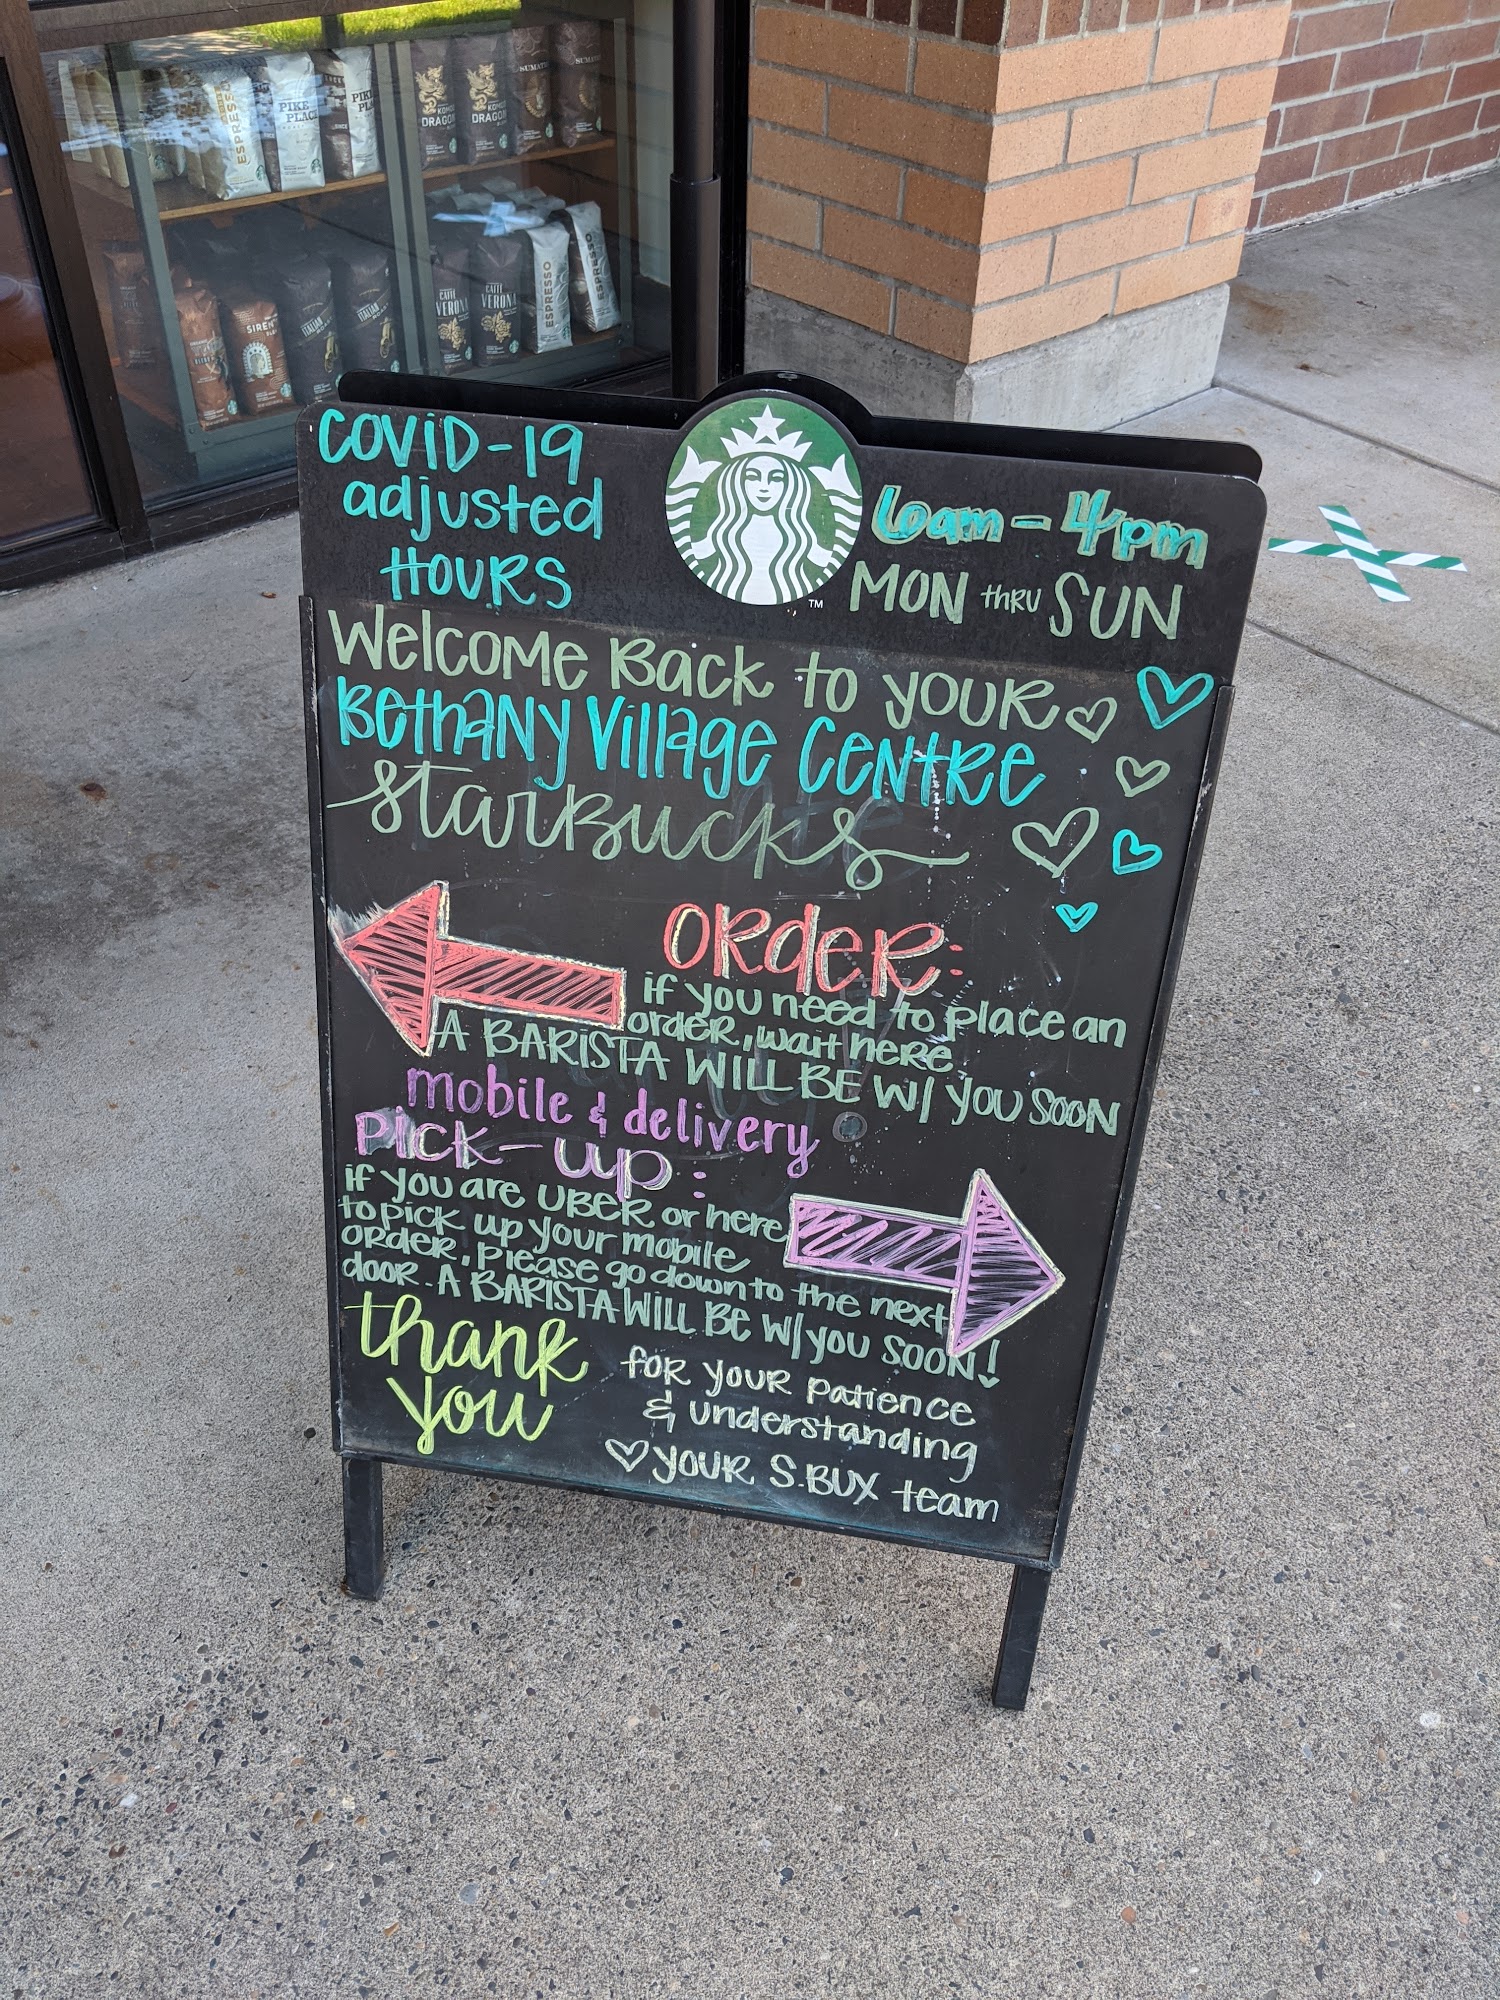 ESPRESSO
PIKE
PLACE
PIKE
PL
KOMODO
DRAGON
KOMODO
DRAGON
SUMATRA
SUMATRA
SIREN
ITALIAN
ITALIAN
CAFFÈ
VERONA
CAFFÈ
VERONA
ESPRESSO
ESPRESSO
COVID-19
adjusted
HOURS
6am - 4pm
MON thRU SUN
TM
Welcome Back to your
Bethany Village Centre
Starbucks
ORdeR:
if you need to place an
order, wait here
A BARISTA WILL BE W/ YOU SOON
mobile & delivery
Pick-up:
if you are UBER or here
to pick up your mobile
order, please go down to the next
door. A BARISTA WILL BE W/ you SOON!
thank
you
for your patience
& understanding
YOUR S.BUX team